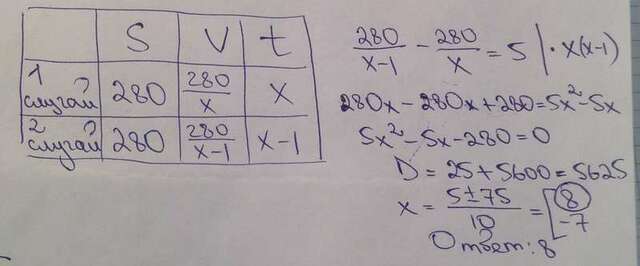 S V t
1 случай 280 280/x x
2 случай 280 280/x-1 x-1
280/x-1 - 280/x = 5 | · x(x-1)
280x - 280x + 280 = 5x² - 5x
5x² - 5x - 280 = 0
D = 25 + 5600 = 5625
x = 5±75/10 = [8
-7
Ответ: 8